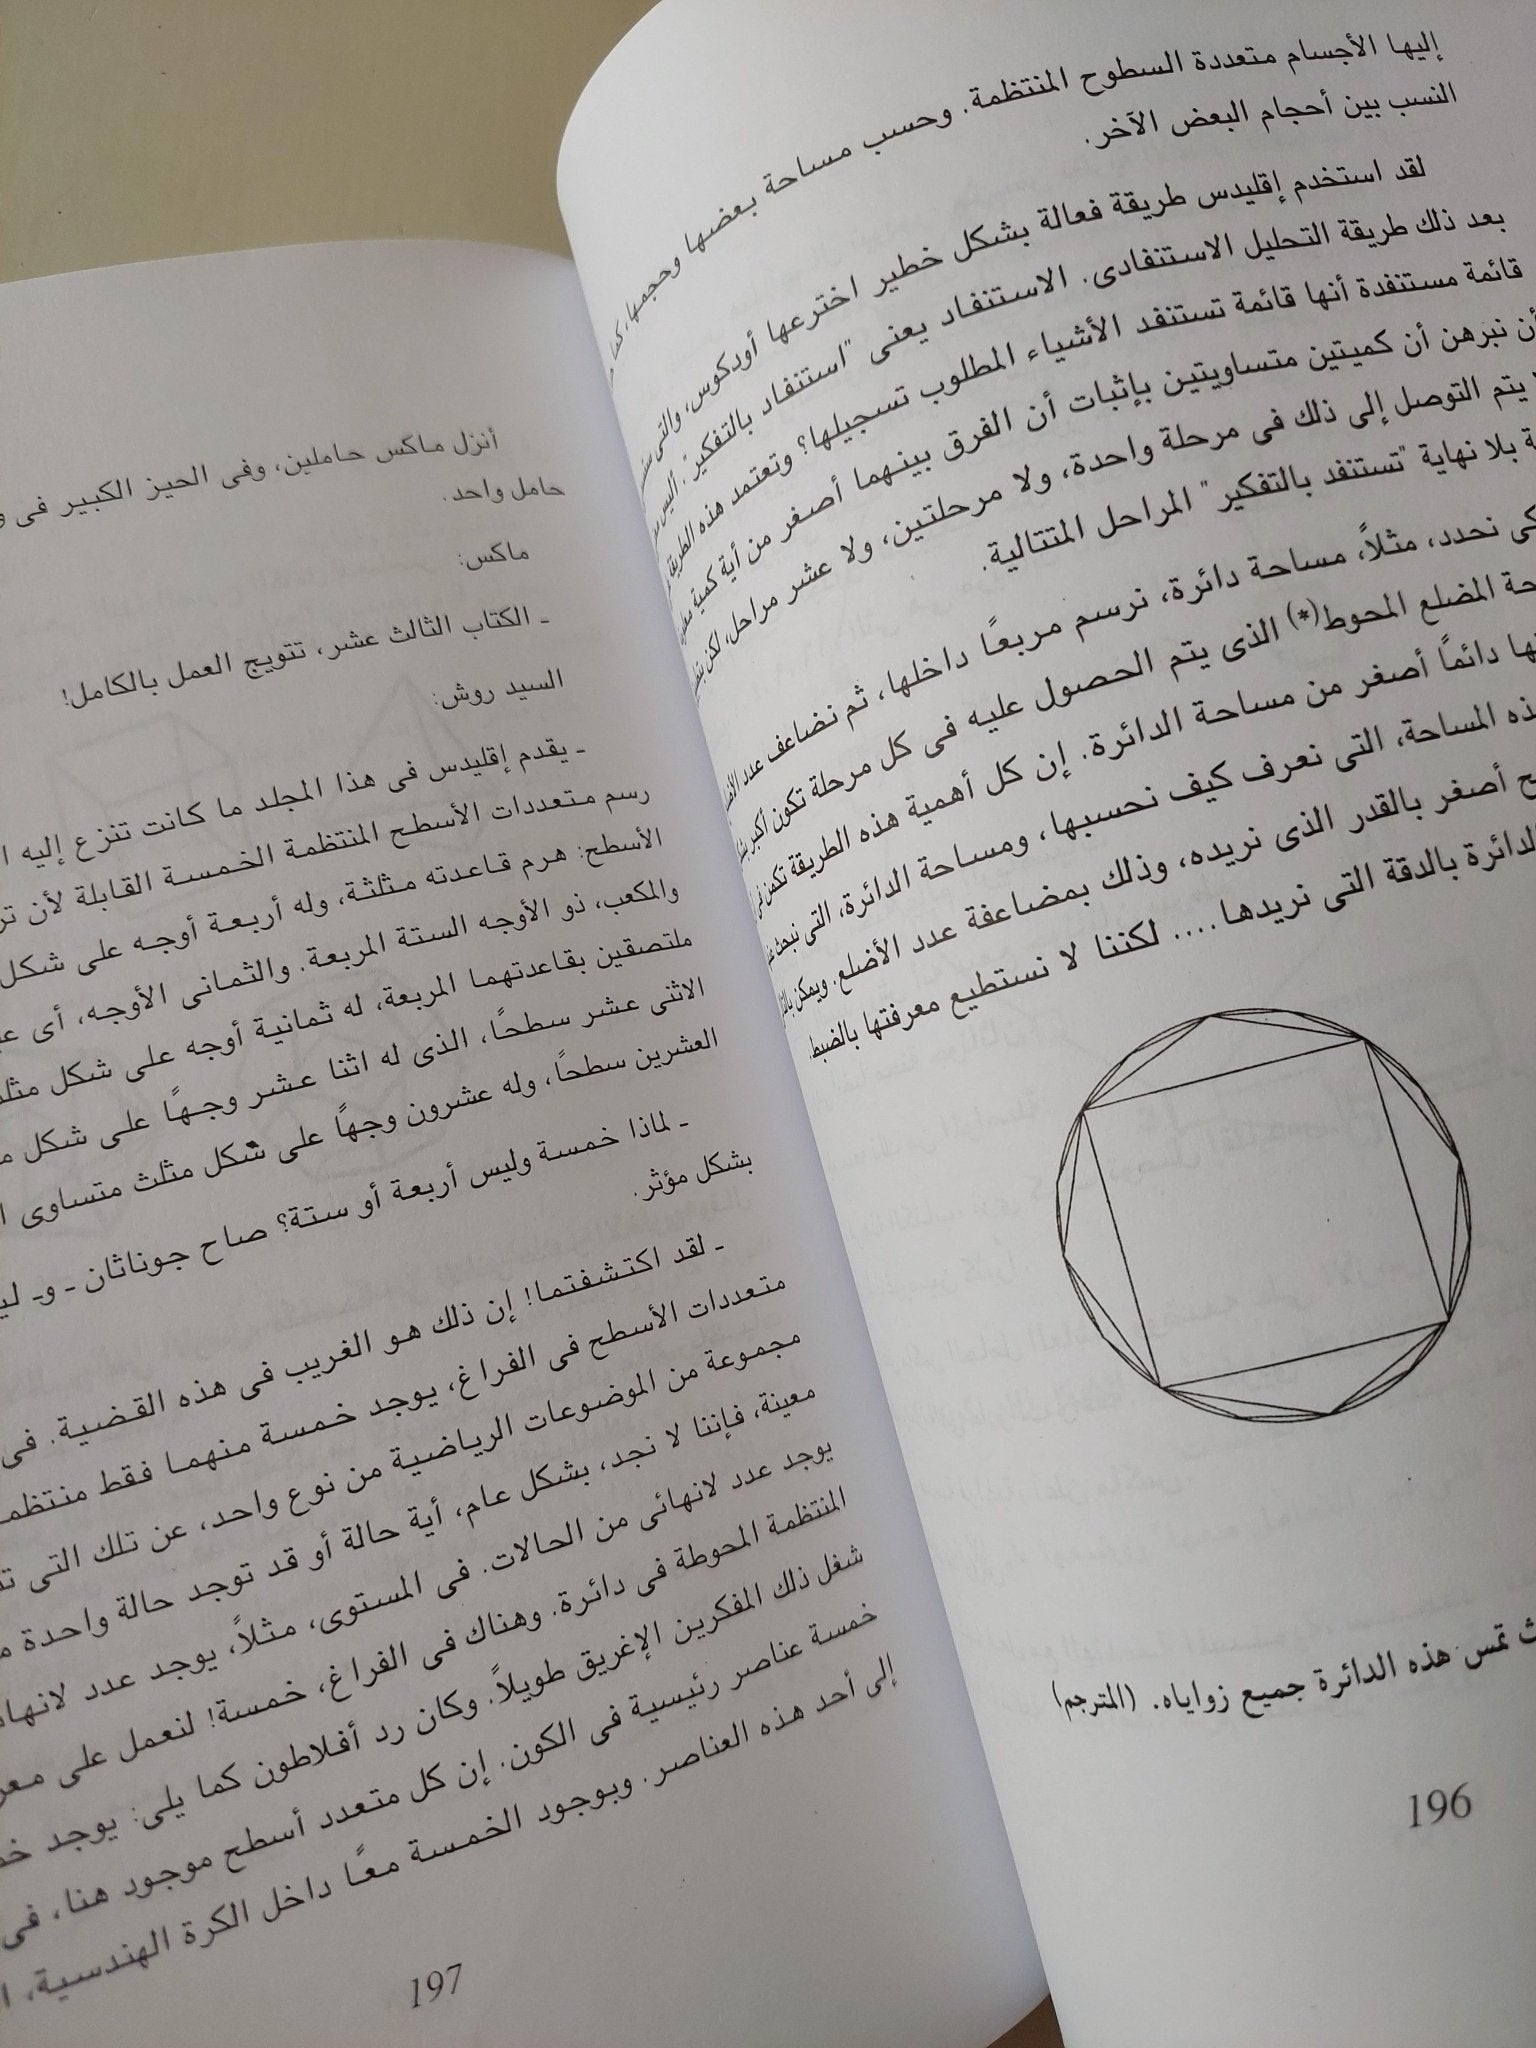 إليها الأجسام متعددة السطوح المنتظمة. وحسب مساحة بعضها وحجمها، كما
النسب بين أحجام البعض الآخر.
لقد استخدم إقليدس طريقة فعالة بشكل خطير اخترعها أودكوس، والتى
بعد ذلك طريقة التحليل الاستنفادى. الاستنفاد يعنى "استنفاد بالتفكير". أليس
قائمة مستنفدة أنها قائمة تستنفد الأشياء المطلوب تسجيلها؟ وتعتمد هذه الطريقة
أن نبرهن أن كميتين متساويتين بإثبات أن الفرق بينهما أصغر من أية كمية
يتم التوصل إلى ذلك فى مرحلة واحدة، ولا مرحلتين، ولا عشر مراحل، لكن
بلا نهاية "تستنفد بالتفكير" المراحل المتتالية.
نحدد، مثلاً، مساحة دائرة، نرسم مربعًا داخلها، ثم نضاعف عدد
المضلع المحوط(*) الذى يتم الحصول عليه فى كل مرحلة تكون أكبر
دائمًا أصغر من مساحة الدائرة. إن كل أهمية هذه الطريقة تكمن
المساحة، التى نعرف كيف نحسبها، ومساحة الدائرة، التى نبحث
أصغر بالقدر الذى نريده، وذلك بمضاعفة عدد الأضلع. ويمكن
الدائرة بالدقة التى نريدها.... لكننا لا نستطيع معرفتها بالضبط.
تمس هذه الدائرة جميع زواياه. (المترجم)
196
أنزل ماكس حاملين، وفى الحيز الكبير فى
حامل واحد.
ماكس:
ـ الكتاب الثالث عشر، تتويج العمل بالكامل!
السيد روش:
ـ يقدم إقليدس فى هذا المجلد ما كانت تنزع إليه
رسم متعددات الأسطح المنتظمة الخمسة القابلة لأن
الأسطح: هرم قاعدته مثلثة، وله أربعة أوجه على شكل
والمكعب، ذو الأوجه الستة المربعة. والثمانى الأوجه، أى
ملتصقين بقاعدتهما المربعة، له ثمانية أوجه على شكل
الاثنى عشر سطحًا، الذى له اثنا عشر وجهًا على شكل
العشرين سطحًا، وله عشرون وجهًا على شكل مثلث متساوى
ـ لماذا خمسة وليس أربعة أو ستة؟ صاح جوناثان ـ و ـ
بشكل مؤثر.
ـ لقد اكتشفتما! إن ذلك هو الغريب فى هذه القضية. فى
متعددات الأسطح فى الفراغ، يوجد خمسة منهما فقط
مجموعة من الموضوعات الرياضية من نوع واحد، عن تلك التى
معينة، فإننا لا نجد، بشكل عام، أية حالة أو قد توجد حالة واحدة
يوجد عدد لانهائى من الحالات. فى المستوى، مثلاً، يوجد عدد
المنتظمة المحوطة فى دائرة. وهناك فى الفراغ، خمسة! لنعمل على
شغل ذلك المفكرين الإغريق طويلاً. وكان رد أفلاطون كما يلى: يوجد
خمسة عناصر رئيسية فى الكون. إن كل متعدد أسطح موجود هنا، فى
إلى أحد هذه العناصر. وبوجود الخمسة معًا داخل الكرة الهندسية،
197